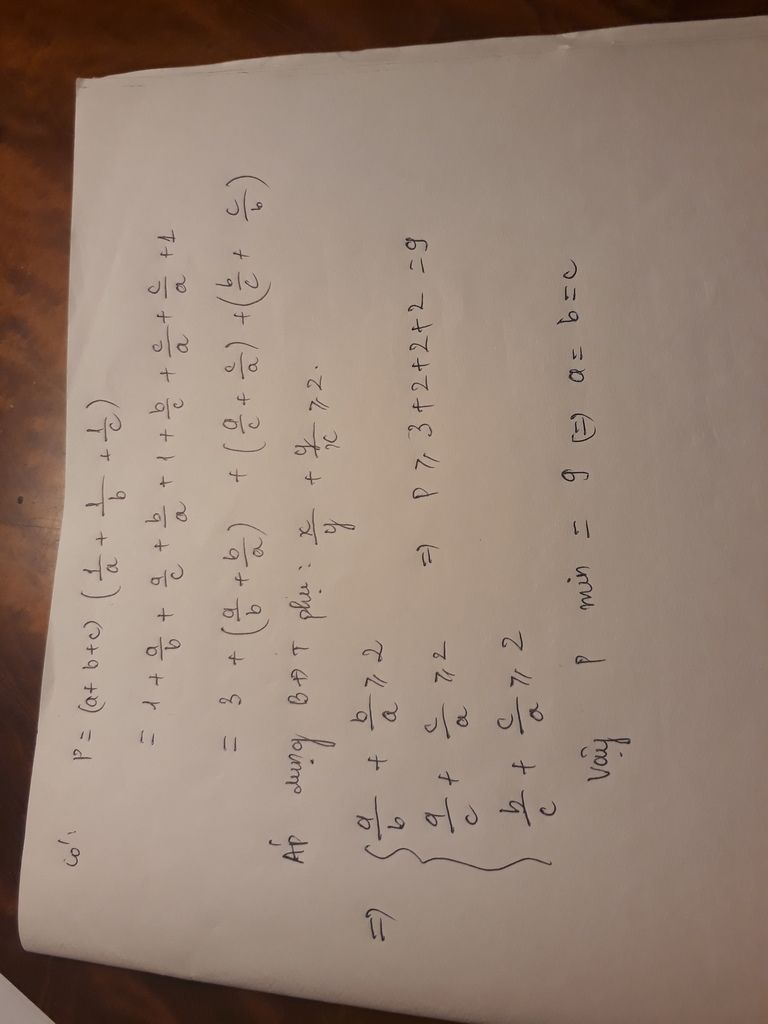 Có: P = (a+b+c) (1/a + 1/b + 1/c)
= 1 + a/b + a/c + b/a + 1 + b/c + c/a + c/a + 1
= 3 + (a/b + b/a) + (a/c + c/a) + (b/c + c/b)
ÁP dụng BĐT phụ: x/y + y/x ≥ 2.
=> { a/b + b/a ≥ 2
a/c + c/a ≥ 2 => P ≥ 3+2+2+2 = 9
b/c + c/a ≥ 2
Vậy P min = 9 (=) a = b = c